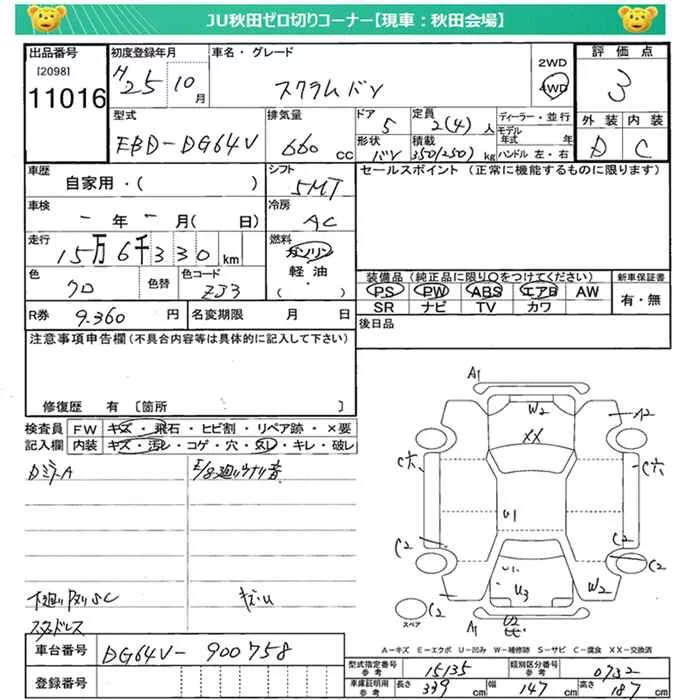 JU秋田ゼロ切りコーナー【現車：秋田会場】
出品番号
[2098]
11016
初度登録年月
H25 10月
車名・グレード
スクラムバン
2WD
4WD
評価点
3
外装 内装
D C
型式
EBD-DG64V
排気量
660 cc
ドア
5
形状
バン
定員
2(4)人
積載
350(250)kg
ディーラー・並行
モデル年式 年
ハンドル 左・右
車歴
自家用・( )
シフト
5MT
セールスポイント (正常に機能するものに限ります)
車検
－年－月( 日)
冷房
AC
走行
15万6千330km
燃料
ガソリン
軽油
( ・ )
色
クロ
色替
色コード
ZJ3
装備品(純正品に限り○をつけてください)
PS PW ABS エアB AW
SR ナビ TV カワ
新車保証書
有・無
R券 9.360円
名変期限 月 日
後日品
注意事項申告欄(不具合内容等は具体的に記入して下さい)
修復歴 有 〔箇所 〕
検査員記入欄
FW キズ・飛石・ヒビ割・リペア跡・×要
内装 キズ・汚レ・コゲ・穴・欠レ・キレ・破レ
DミラーA
下廻りアスリSC
スタッドレス
キズ・U
A1
W2
XX
A2
C穴
C穴
U1
C2
C2
C2
U1
U3
W2
C2
スペア
A1
U2
A-キズ E-エクボ U-凹み W-補修跡 S-サビ C-腐食 XX-交換済
車台番号
DG64V-900758
登録番号
型式指定番号 参考 15135
類別区分番号 参考 0732
車庫証明用 参考 長さ 339cm 幅 147cm 高さ 187cm